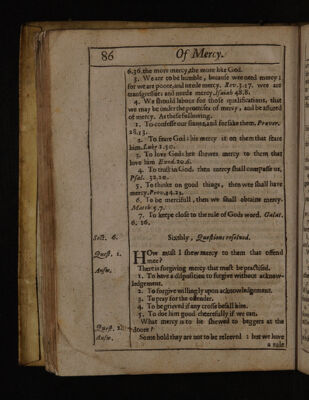 86
Of Mercy.
6.36. the more mercy, the more like God.
3. We are to be humble, because wee need mercy:
for we are poore, and neede mercy. Rev. 3.17. wee are
transgressors and neede mercy. Isaiah 48.8.
4. We should labour for those qualifications, that
we may be under the promises of mercy, and be assured
of mercy. As these following.
1. To confesse our sinne, and forsake them. Prover.
28.13.
2. To feare God: his mercy is on them that feare
him. Luke 1.50.
3. To love God: hee shewes mercy to them that
love him Exod. 20.6.
4. To trust in God: then mercy shall compasse us,
Psal. 32.10.
5. To thinke on good things, then wee shall have
mercy. Prov. 14.22.
6. To be mercifull, then we shall obtaine mercy.
Matth. 5.7.
7. To keepe close to the rule of Gods word. Galat.
6. 16.
Sect. 6.
Sixthly, Questions resolved.
Quest. 1.
HOw must I shew mercy to them that offend
mee?
Answ.
There is forgiving mercy that must be practised.
1. To have a disposition to forgive without acknow-
ledgement.
2. To forgive willingly upon acknowledgement.
3. To pray for the offender.
4. To be grieved if any crosse befall him.
5. To doe him good cheerefully if we can.
What mercy is to be shewed to beggers at the
Quest. 2.
doore?
Answ.
Some hold they are not to be releeved: but we have
a rule